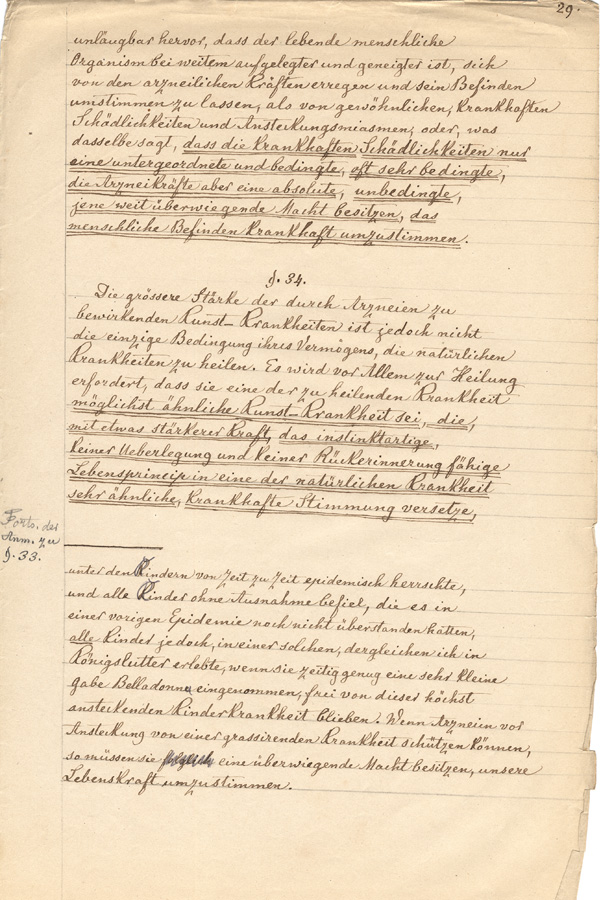 29.
unlaugbar hervor, dass der lebende menschliche
Organism bei weitem aufgelegter und geneigter ist, sich
von den arzneilichen Kräften erregen und sein Befinden
umstimmen zu lassen, als von gewöhnlichen, krankhaften
Schädlichkeiten und Ansteckungsmiasmen, oder, was
dasselbe sagt, dass die krankhaften Schädlichkeiten nur
eine untergeordnete und bedingte, oft sehr bedingte,
die Arzneikräfte aber eine absolute, unbedingte,
jene weit überwiegende Macht besitzen, das
menschliche Befinden krankhaft umzustimmen.
§. 34.
Die grössere Stärke der durch Arzneien zu
bewirkenden Kunst-Krankheiten ist jedoch nicht
die einzige Bedingung ihres Vermögens, die natürlichen
Krankheiten zu heilen. Es wird vor Allem zur Heilung
erfordert, dass sie eine der zu heilenden Krankheit
möglichst ähnliche Kunst-Krankheit sei, die,
mit etwas stärkerer Kraft, das instinktartige,
keiner Ueberlegung und keiner Rückerinnerung fähige
Lebensprincip in eine der natürlichen Krankheit
sehr ähnliche, krankhafte Stimmung versetze,
Forts. der
Anm. zu
§. 33.
unter den Kindern von Zeit zu Zeit epidemisch herrschte,
und alle Kinder ohne Ausnahme befiel, die es in
einer vorigen Epidemie noch nicht überstanden hatten,
alle Kinder jedoch, in einer solchen, dergleichen ich in
Königslutter erlebte, wenn sie zeitig genug eine sehr kleine
Gabe Belladonna eingenommen, frei von dieser höchst
ansteckenden Kinderkrankheit blieben. Wenn Arzneien vor
Ansteckung von einer grassirenden Krankheit schützen können,
so müssen sie eine überwiegende Macht besitzen, unsere
Lebenskraft umzustimmen.